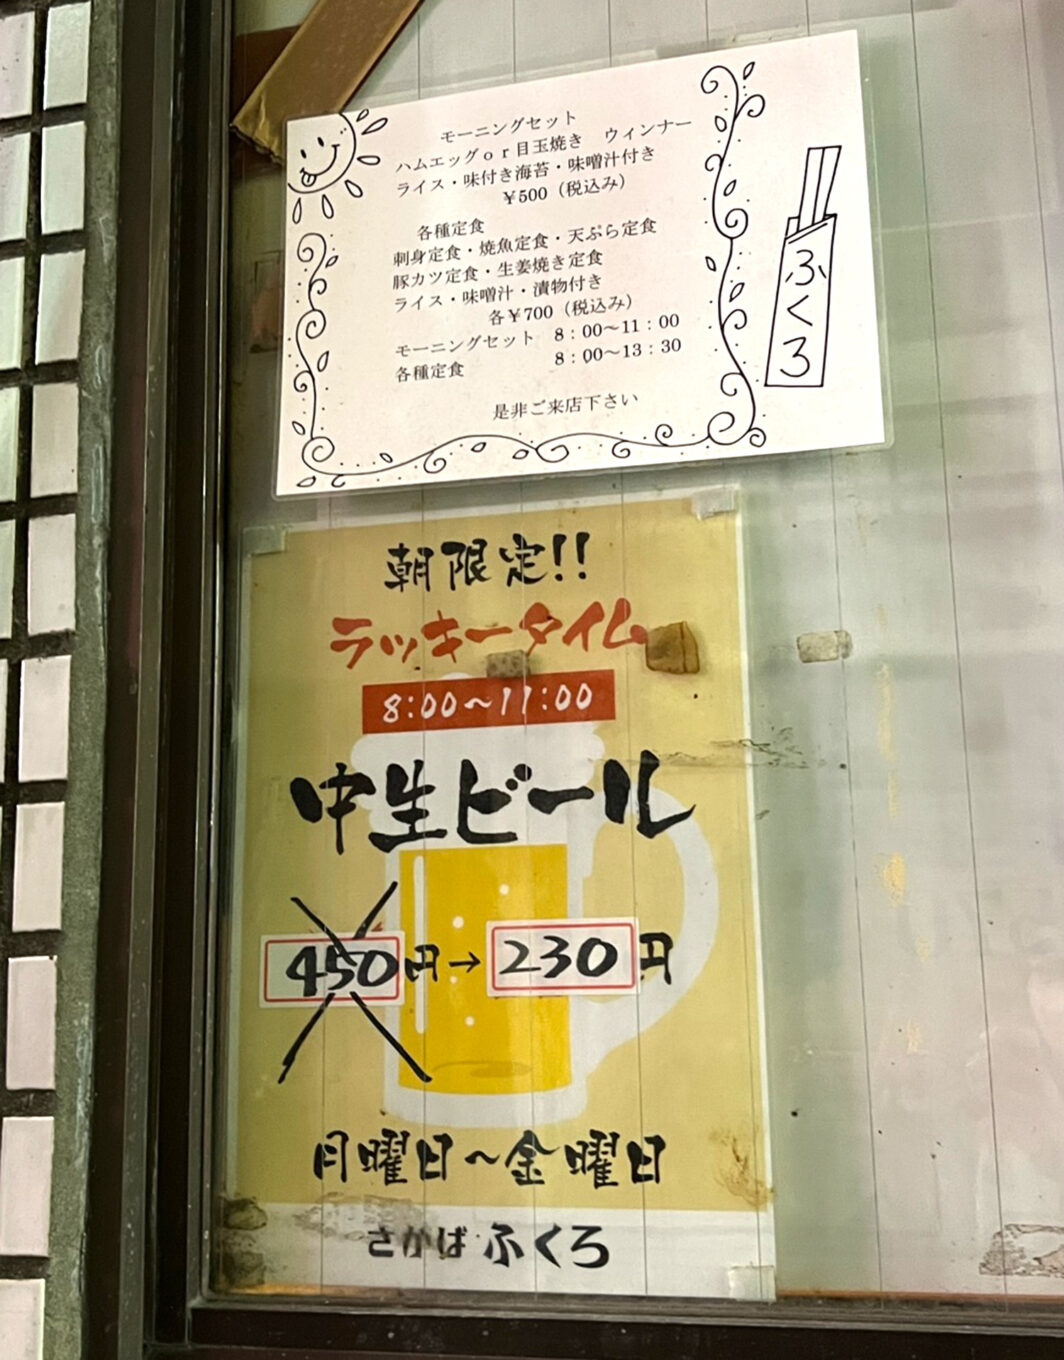 モーニングセット
ハムエッグor目玉焼き　ウィンナー
ライス・味付き海苔・味噌汁付き
￥500（税込み）
各種定食
刺身定食・焼魚定食・天ぷら定食
豚カツ定食・生姜焼き定食
ライス・味噌汁・漬物付き
各￥700（税込み）
モーニングセット　8：00〜11：00
各種定食　8：00〜13：30
是非ご来店下さい
ふくろ
朝限定!!
ラッキータイム
8:00〜11:00
中生ビール
450円→230円
月曜日〜金曜日
さかば ふくろ